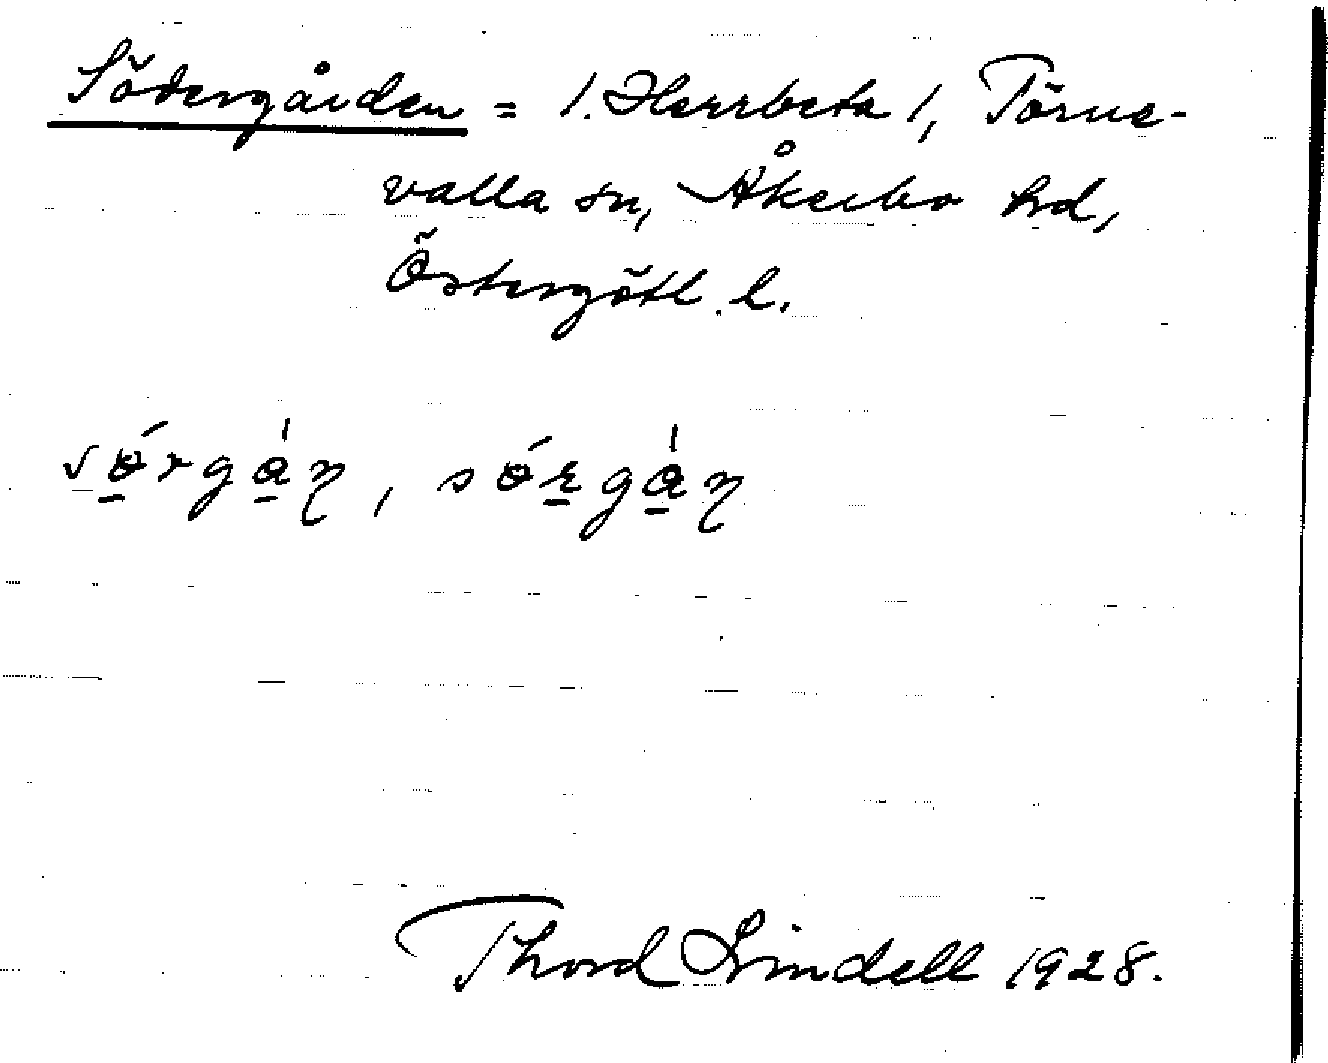 Södergården = 1. Herrbeta 1, Törne-
valla sn, Åkerbo hd,
Östergötl. l.
sǿ̱rgå̱̀ŋ, sǿṟgå̱̀ŋ
Thord Lindell 1928.